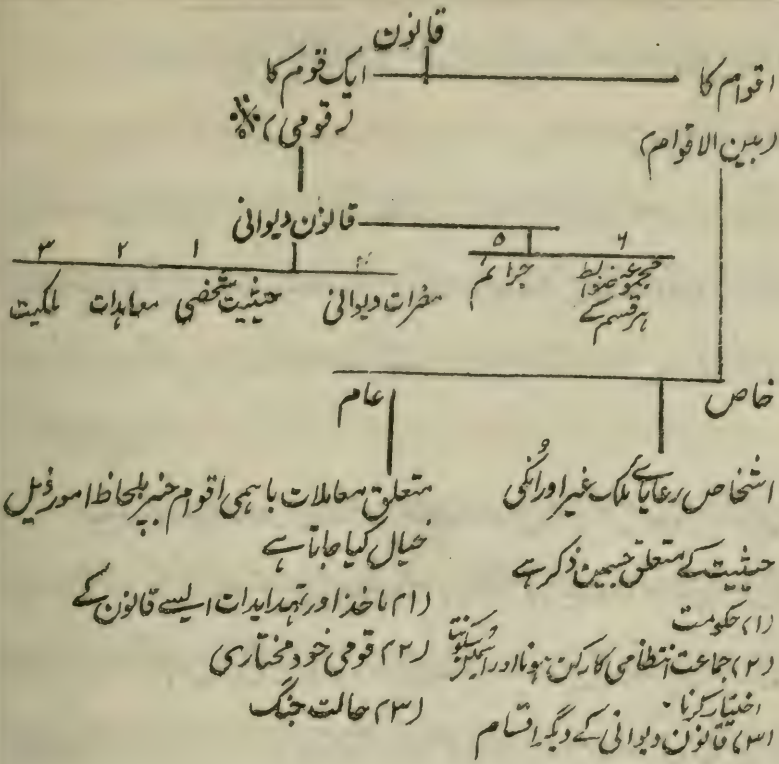 قانون
اقوام کا ایک قوم کا
(بین الاقوام) (قومی)
قانون دیوانی
۶ ۵ ۴ ۱ ۲ ۳
مجموعہ ضوابط ہر قسم کے
جرائم
مضرات دیوانی
حیثیت شخصی
معاہدات
ملکیت
خاص عام
اشخاص رعایائے ملک غیر اور اُنکی
حیثیت کے متعلق جسمین ذکر ہے
(۱) حکومت
(۲) جماعت انتظامی کا رکن ہونا اور سکونت
اختیار کرنا۔
(۳) قانون دیوانی کے دیگر اقسام
متعلق معاملات باہمی اقوام جنپر بلحاظ امور ذیل
خیال کیا جاتا ہے
(۱) ماخذ اور تہدیدات ایسے قانون کے
(۲) قومی خود مختاری
(۳) حالت جنگ